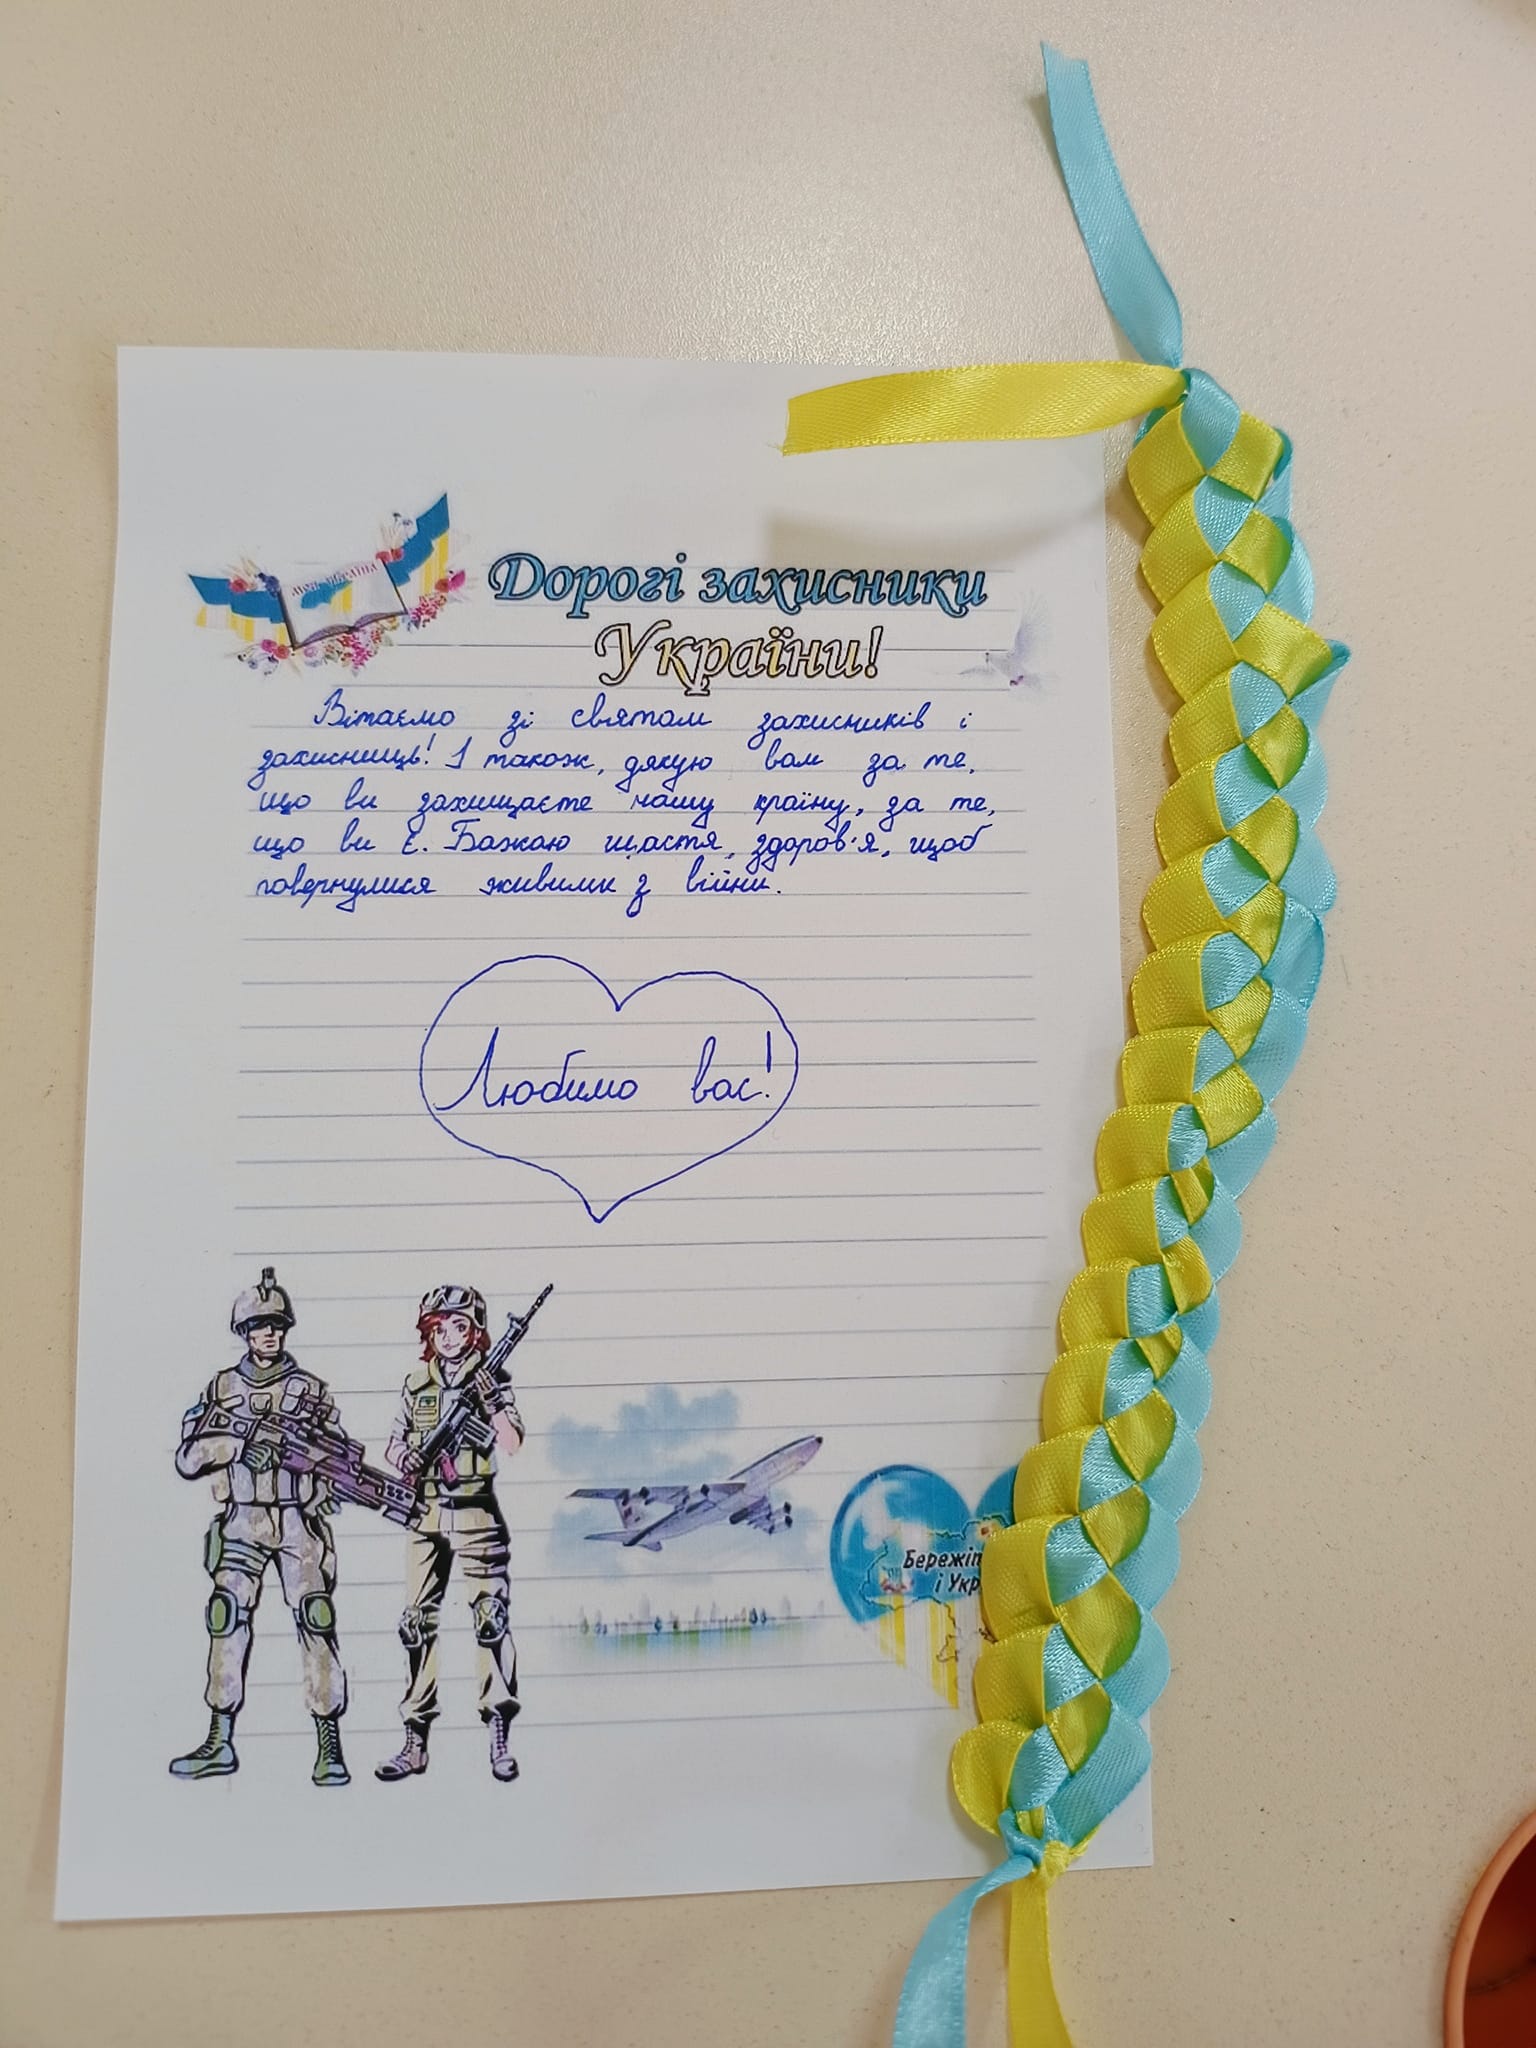 моя Україна
Дорогі захисники
України!
Вітаємо зі святом захисників і
захисниць! І також, дякую вам за те,
що ви захищаєте нашу країну, за те,
що ви є. Бажаю щастя, здоров'я, щоб
повернулися живими з війни.
Любимо вас!
Бережіт
і Укр